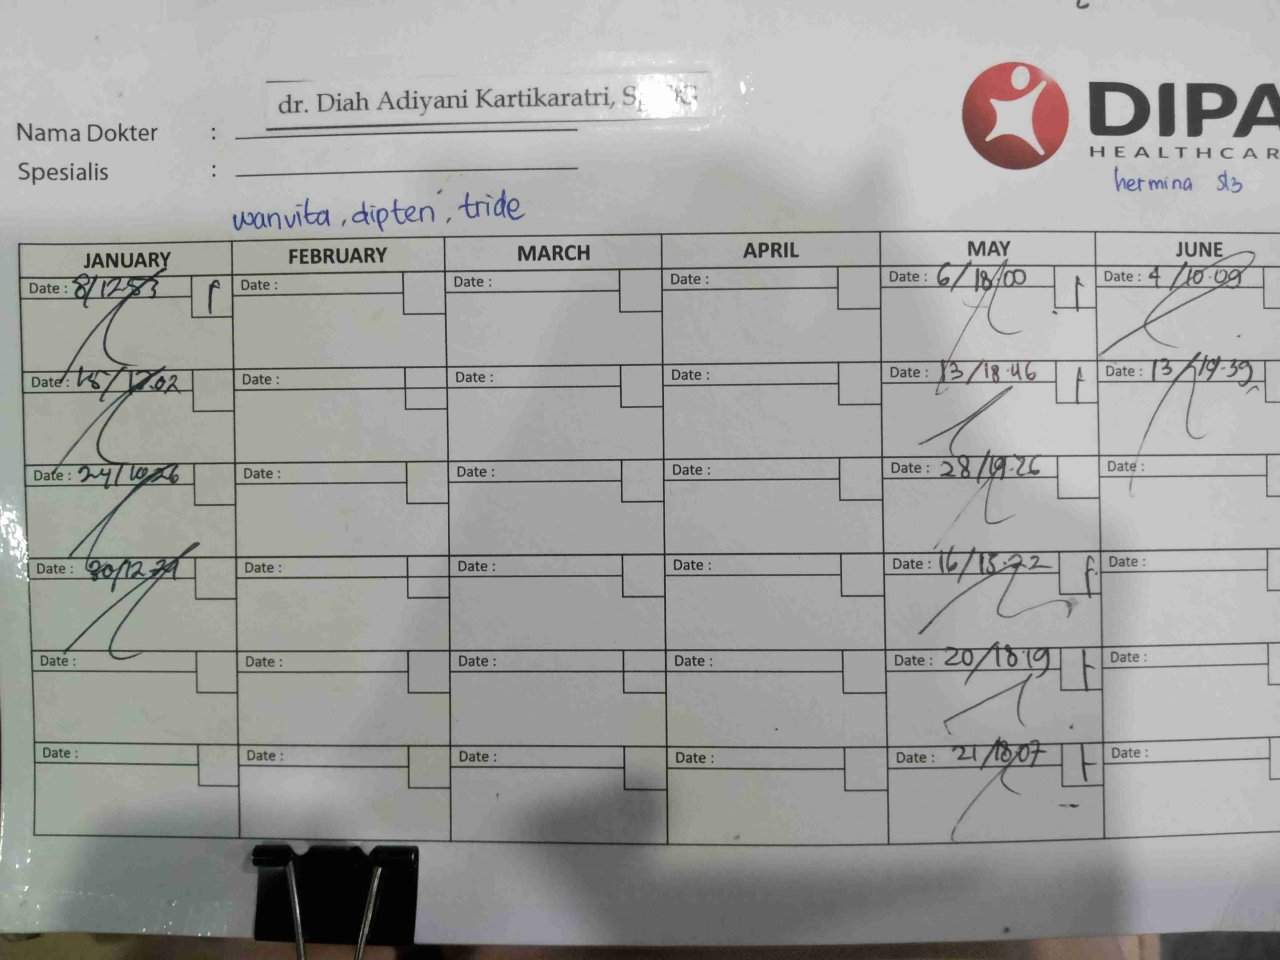 dr. Diah Adiyani Kartikaratri,
Nama Dokter :
Spesialis :
DIPA
HEALTHCAR
hermina
wanvita, dipten, tride
JANUARY FEBRUARY MARCH APRIL MAY JUNE
Date : 8/12.53 Date : Date : Date : Date : 6/18.00 Date : 4/10.09
Date : 15/12.02 Date : Date : Date : Date : 13/18.46 Date : 13/19.39
Date : 24/10.26 Date : Date : Date : Date : 28/19.26 Date :
Date : Date : Date : Date : Date : 16/13.22 Date :
Date : Date : Date : Date : Date : 20/18.19 Date :
Date : Date : Date : Date : Date : 21/18.07 Date :